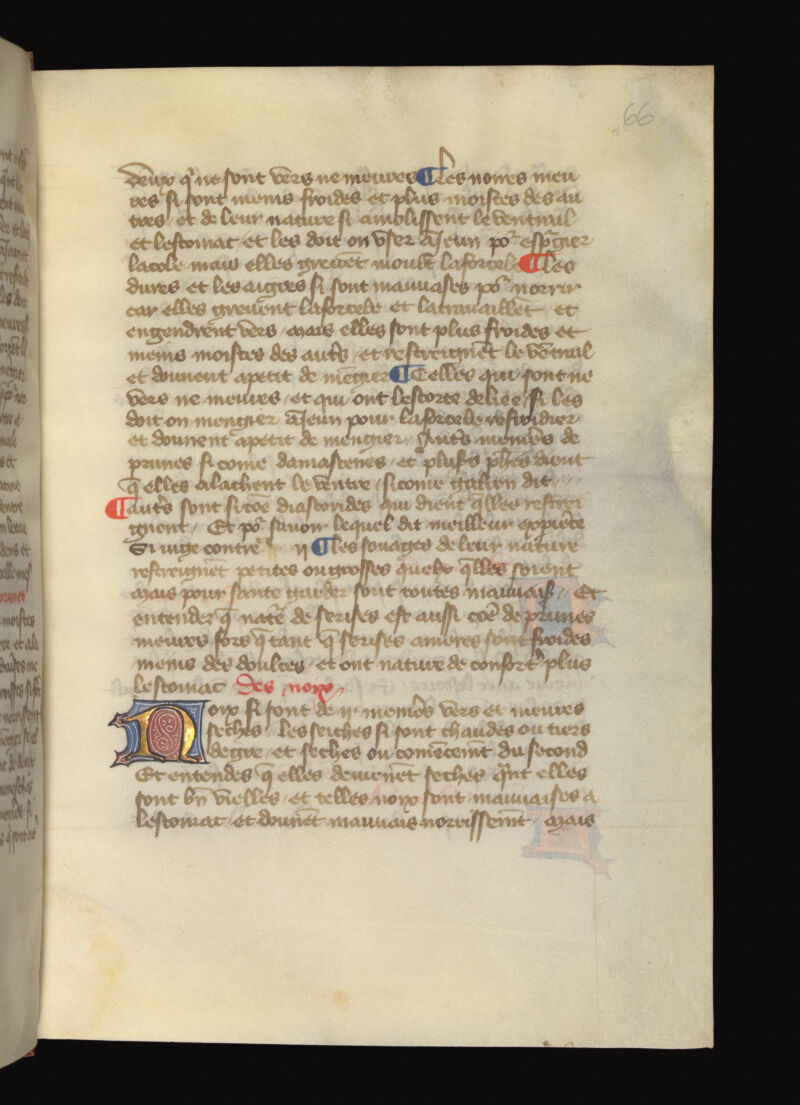 66
deux q̃ ne sont vers ne meures ¶ Les noires meu
res si sont meins froides et plus moistes des au
tres / et de leur nature si amolissent le ventrail
et lestomac / et les doit on vser a jeun po᷑ esp̃gier
lacole mais elles grieuẽt moult laforcele ¶ Les
dures et les aigres si sont mauuaises po᷑ norrir
car elles grieuent laforcele et latrauaillẽt / et
engendrent vers / mais elles sont plus froides et
meins moistes des aut̃s / et restreignẽt le vẽtrail
et donnent apetit de mẽgier ¶ Celles qui sont ne
vers ne meures / et qui ont lescorce deliee / si les
doit on mengier a jeun pour laforcele refroidier
et donnent apetit de mengier / Aut̃s menieres de
prunes si come damascenes / et plus̃s ph̃es dient
q̃ elles alachent le ventre / si come galien dit
¶ aut̃s sont si cõe diascorides qui dient q̃lles restrai
gnent / Et po᷑ sauoir lequel dit meilleur
Si iuge contre ij ¶ Les souages de leur nature
restreignẽt petites ou grosses queles q̃lles soient
mais pour sante garder sont toutes mauuais / Et
entendez q̃ nat̃e de serises est aussi cõe de prunes
meures fors q̃ tant q̃ serises ameres sont froides
meins des doulces / et ont nature de confort̃ plus
lestomac / Des noix
Noix si sont de ij meniẽs vers et meures
seches / les seiches si sont chaudes ou tiers
degre / et seches ou comẽceint du second
Et entendes q̃ elles deuienẽt seches q̃nt elles
sont bñ vieilles / et telles noix sont mauuaises a
lestomac / et donnẽt mauuais norrissemt̃ / Mais